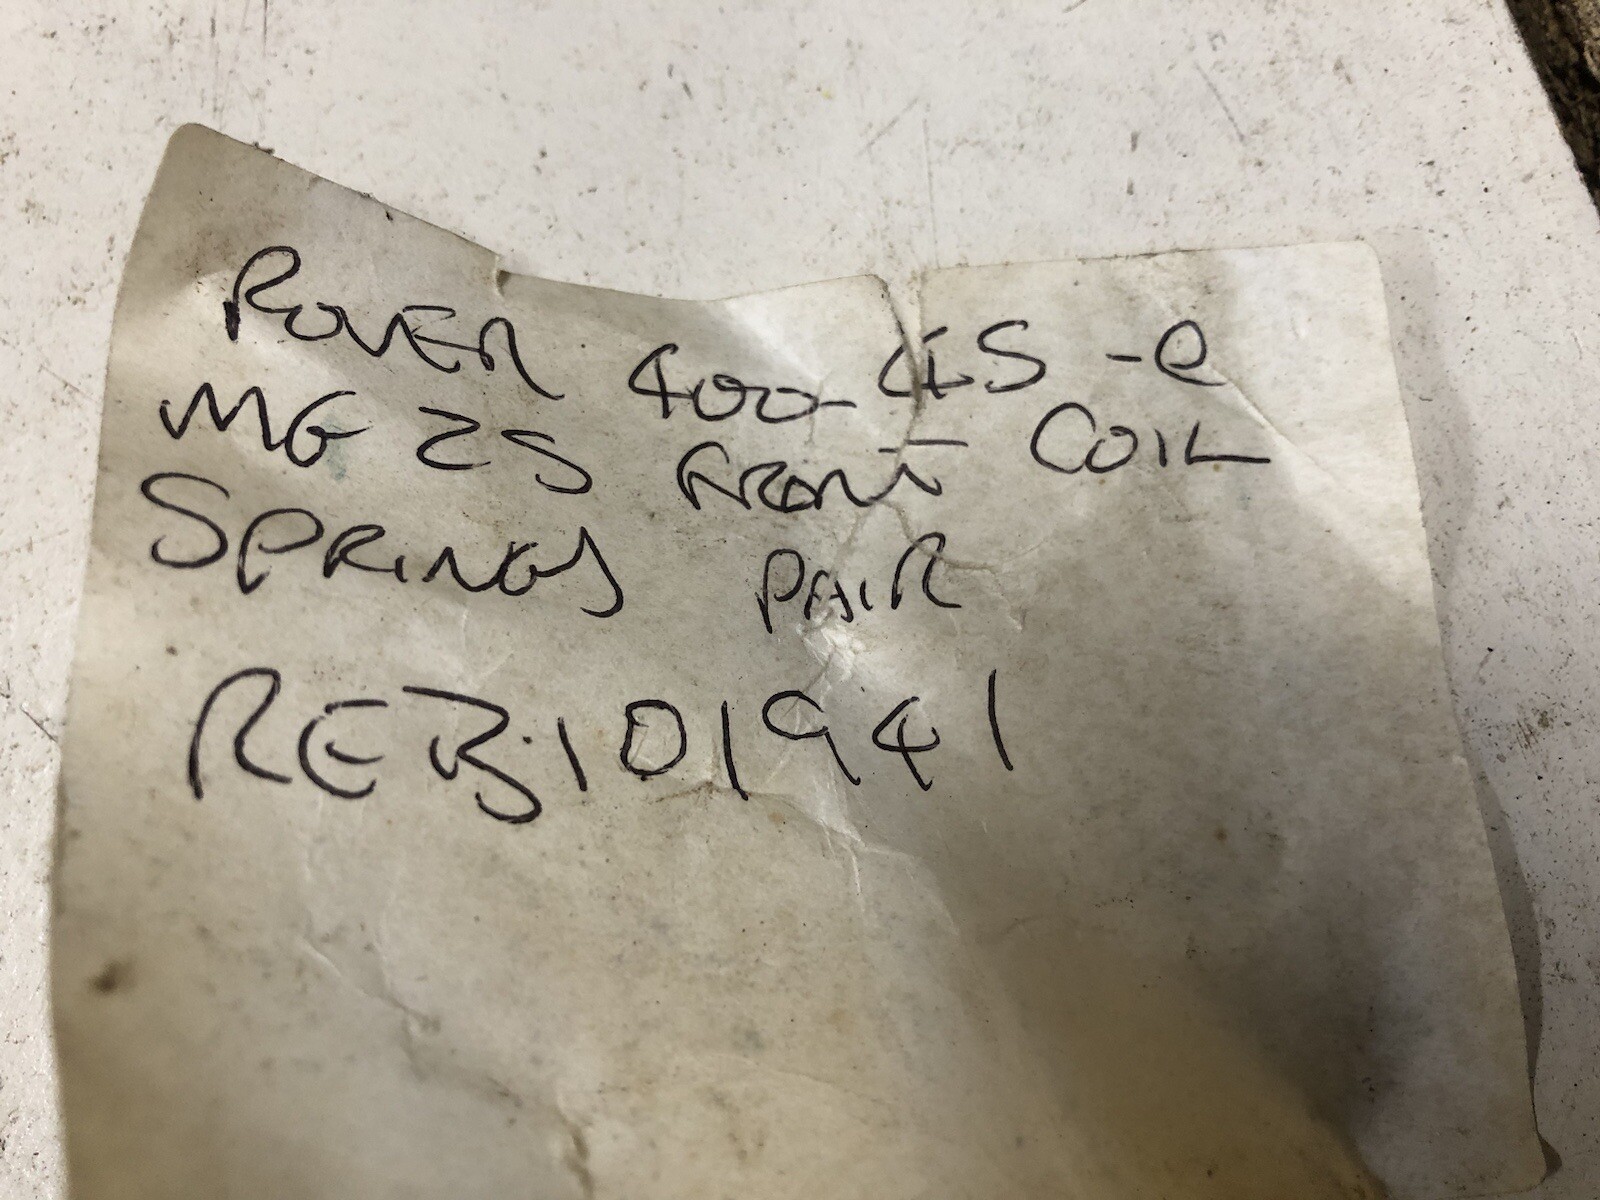 ROVER 400-45-e
MG ZS FRONT COIL
SPRINGS PAIR
REB101941